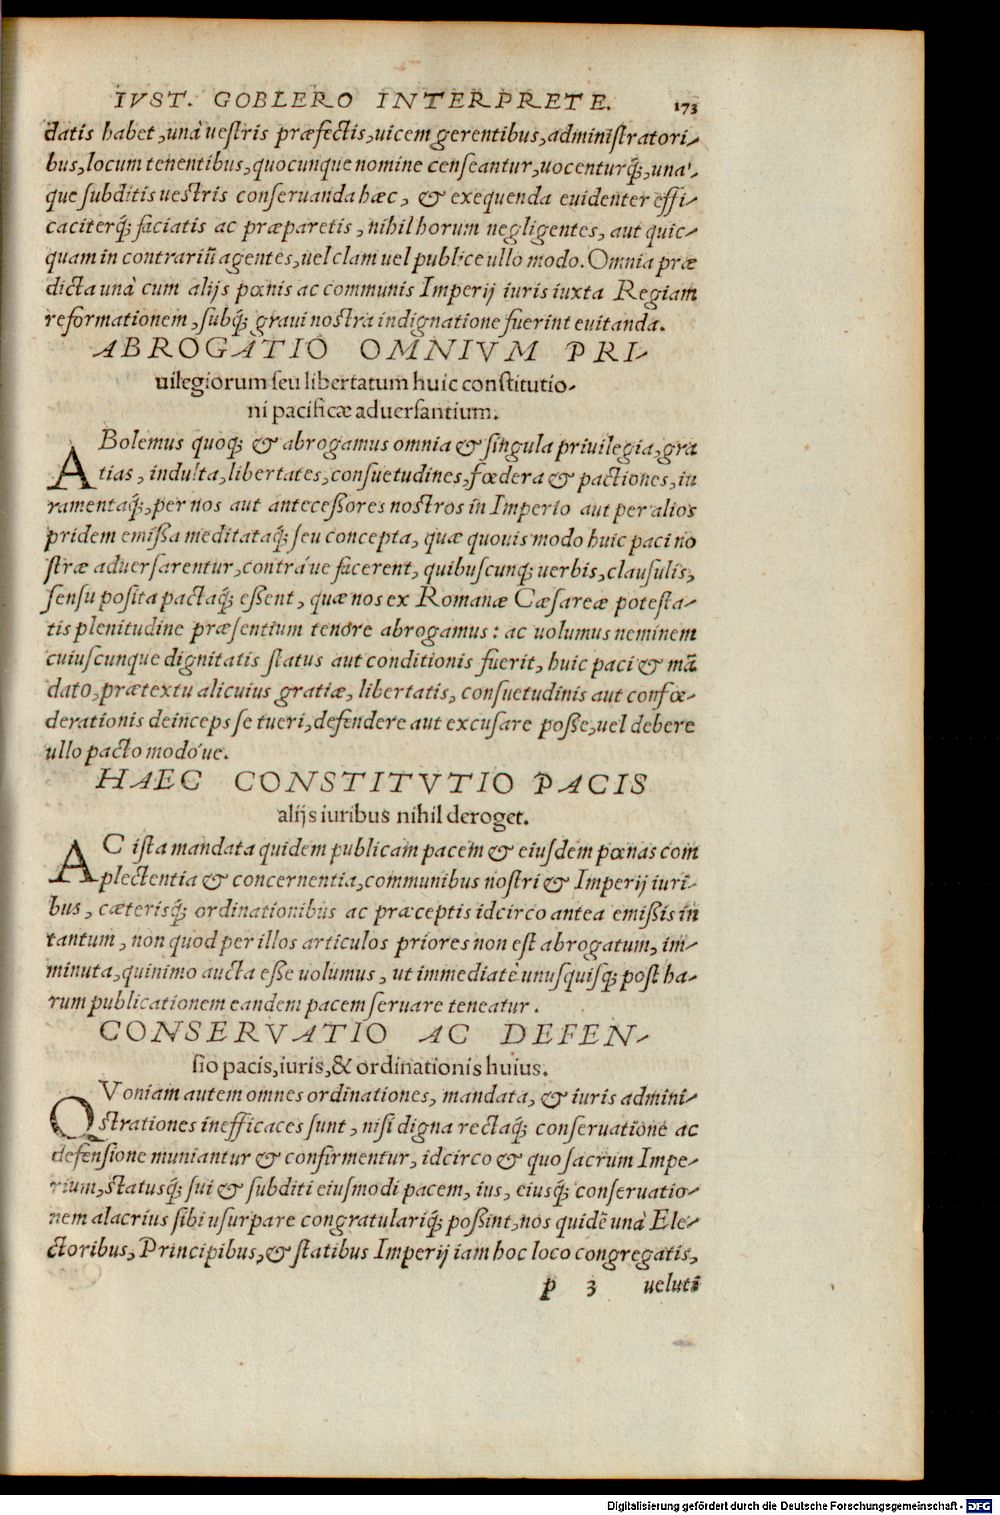 IVST. GOBLERO INTERPRETE. 173
datis habet, unà uestris præfectis, uicem gerentibus, administratori-
bus, locum tenentibus, quocunque nomine censeantur, uocenturq́;, una'-
que subditis uestris conseruanda hæc, & exequenda euidenter effi-
caciterq́; faciatis ac præparetis, nihil horum negligentes, aut quic-
quam in contrariũ agentes, uel clam uel publice ullo modo. Omnia præ
dicta unà cum alijs pœnis ac communis Imperij iuris iuxta Regiam
reformationem, subq́; graui nostra indignatione fuerint euitanda.
ABROGATIO OMNIVM PRI-
uilegiorum seu libertatum huic constitutio-
ni pacificæ aduersantium.
ABolemus quoq; & abrogamus omnia & singula priuilegia, gra
tias, indulta, libertates, consuetudines, fœdera & pactiones, iu
ramentaq́;, per nos aut antecessores nostros in Imperio aut per alios
pridem emissa meditataq́; seu concepta, quæ quouis modo huic paci no
stræ aduersarentur, contrá'ue facerent, quibuscunq; uerbis, clausulis,
sensu posita pactaq́; essent, quæ nos ex Romanæ Cæsareæ potesta-
tis plenitudine præsentium tenore abrogamus: ac uolumus neminem
cuiuscunque dignitatis status aut conditionis fuerit, huic paci & mã
dato, prætextu alicuius gratiæ, libertatis, consuetudinis aut confœ-
derationis deinceps se tueri, defendere aut excusare posse, uel debere
ullo pacto modo'ue.
HAEC CONSTITVTIO PACIS
alijs iuribus nihil deroget.
AC ista mandata quidem publicam pacem & eiusdem pœnas com
plectentia & concernentia, communibus nostri & Imperij iuri-
bus, cæterisq́; ordinationibus ac præceptis idcirco antea emissis in
tantum, non quod per illos articulos priores non est abrogatum, im-
minuta, quinimo aucta esse uolumus, ut immediatè unusquisq; post ha-
rum publicationem eandem pacem seruare teneatur.
CONSERVATIO AC DEFEN-
sio pacis, iuris, & ordinationis huius.
QVoniam autem omnes ordinationes, mandata, & iuris admini-
strationes inefficaces sunt, nisi digna rectaq́; conseruatione ac
defensione muniantur & confirmentur, idcirco & quo sacrum Impe-
rium, statusq́; sui & subditi eiusmodi pacem, ius, eiusq́; conseruatio-
nem alacrius sibi usurpare congratulariq́; possint, nos quidẽ unà Ele-
ctoribus, Principibus, & statibus Imperij iam hoc loco congregatis,
p 3 ueluti
Digitalisierung gefördert durch die Deutsche Forschungsgemeinschaft - DFG